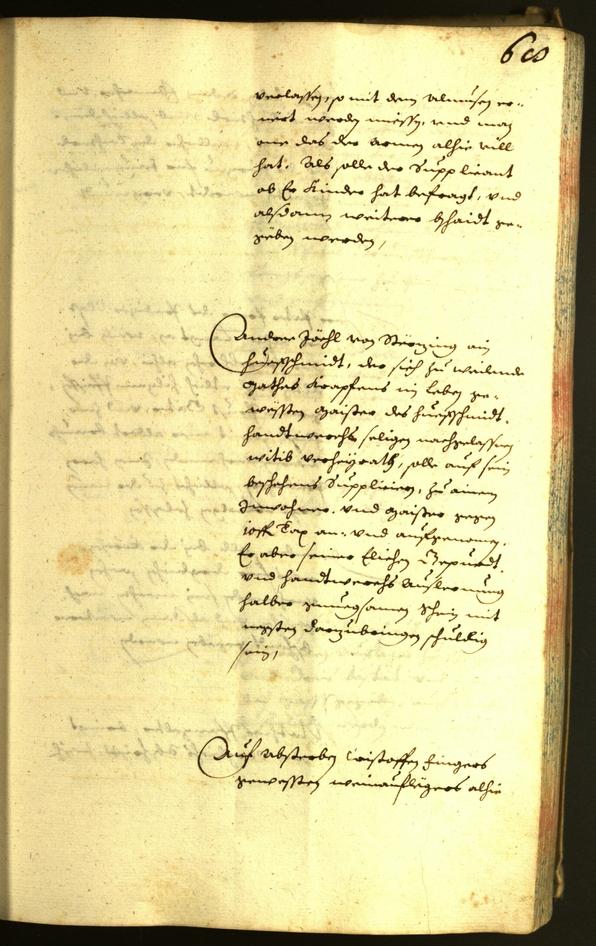 60
verlassen, so mit dem Almusen er-
nört werden müessen, vnd man
one das der armen alhie vill
hat. Als solle der Supplicant
ob Er Kinder hat befragt, vnd
alsdann weiterer bschaidt ge-
geben werden,
Andree Jöchl von Störzing ain
huefschmidt, der sich zu weilendt
Mathes Krapfens in leben ge-
westen maister des huefschmidt-
handtwerchs seligen nachgelassen
witib verheyrath, solle auf sein
beschehens Supplicieren, zu ainem
Inwohner, vnd maister gegen
Tax an- vnd aufgenomen,
Er aber seiner Elichen Gepurdt
vnd handtwerchs Auslernung
halber genuegsamen Schein mit
negsten darzubringen schuldig
sein,
Auf absterben Cristoffen Fingers
gewesten weinauflegers alhie